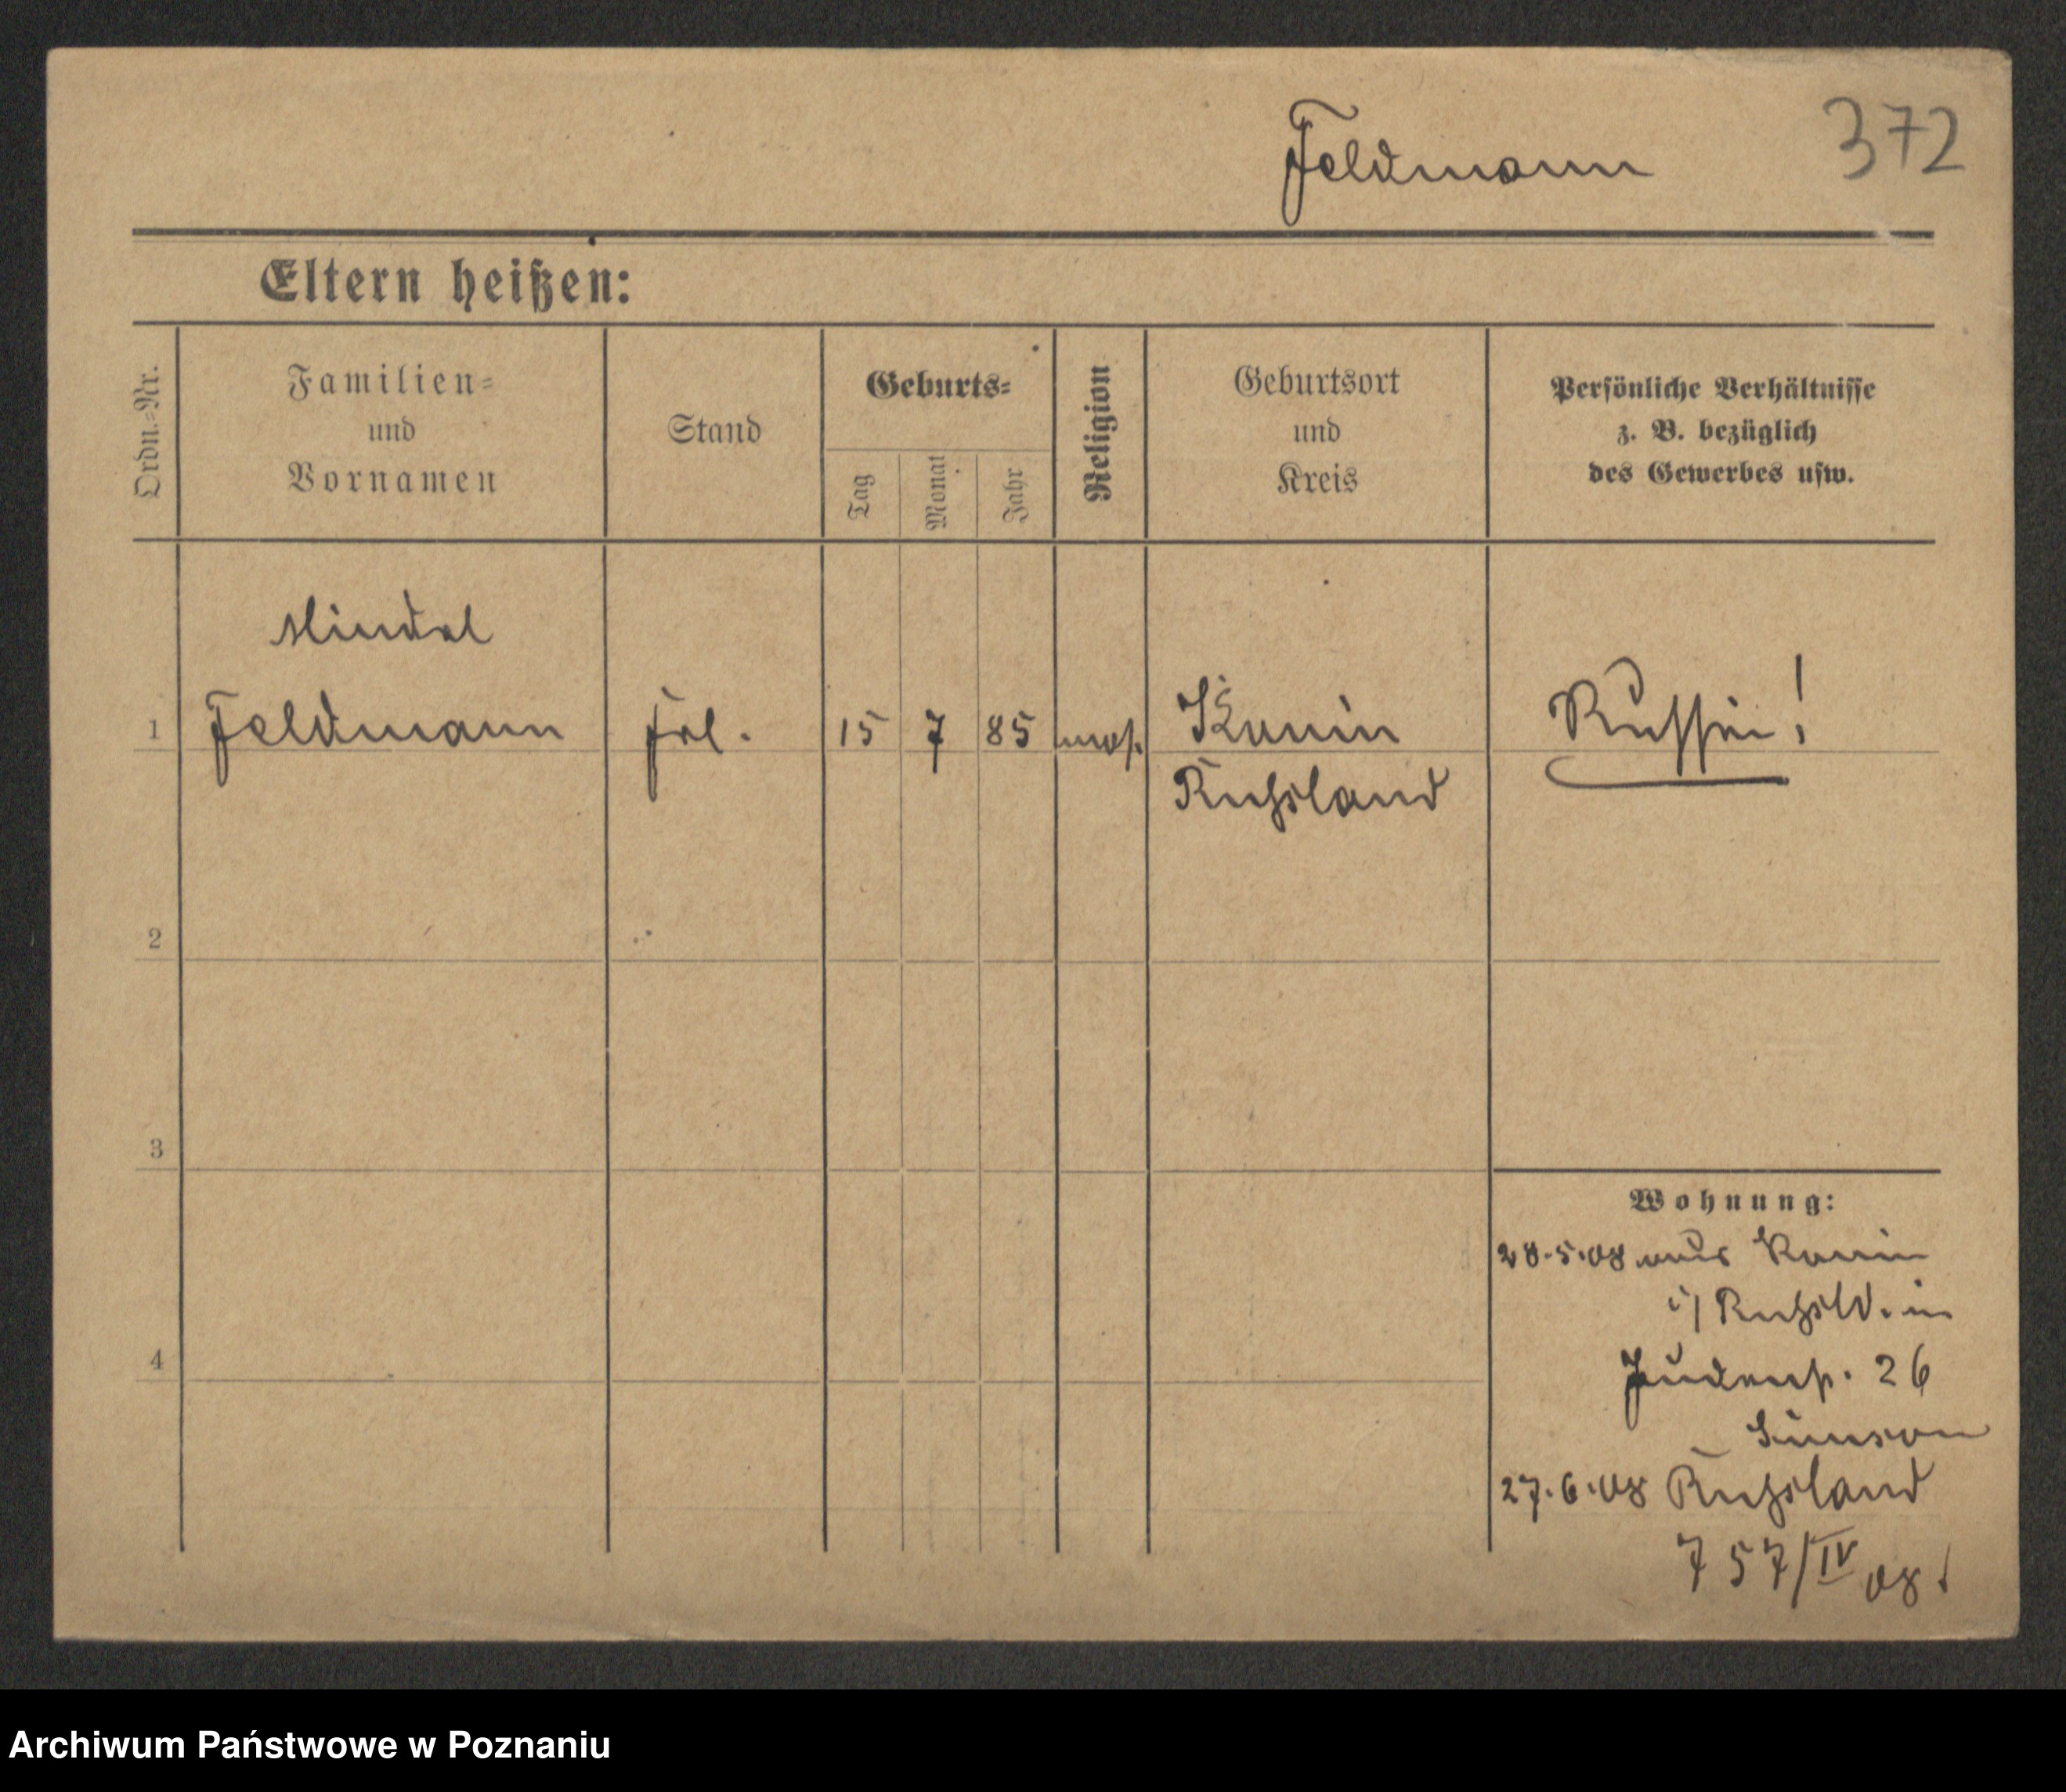 Feldmann 372
Eltern heißen:
Ordn.-Nr.
Familien-
und
Vornamen
Stand
Geburts-
Tag
Monat
Jahr
Religion
Geburtsort
und
Kreis
Persönliche Verhältnisse
z. B. bezüglich
des Gewerbes usw.
Mindel
1 Feldmann Frl. 15 7 85 mos. Konin Russin!
Rußland
2
3
Wohnung:
28.5.08 aus Konin
i/ Rußld. in
4
Judenstr. 26
Simson
27.6.08 Rußland
757/IV 08
Archiwum Państwowe w Poznaniu